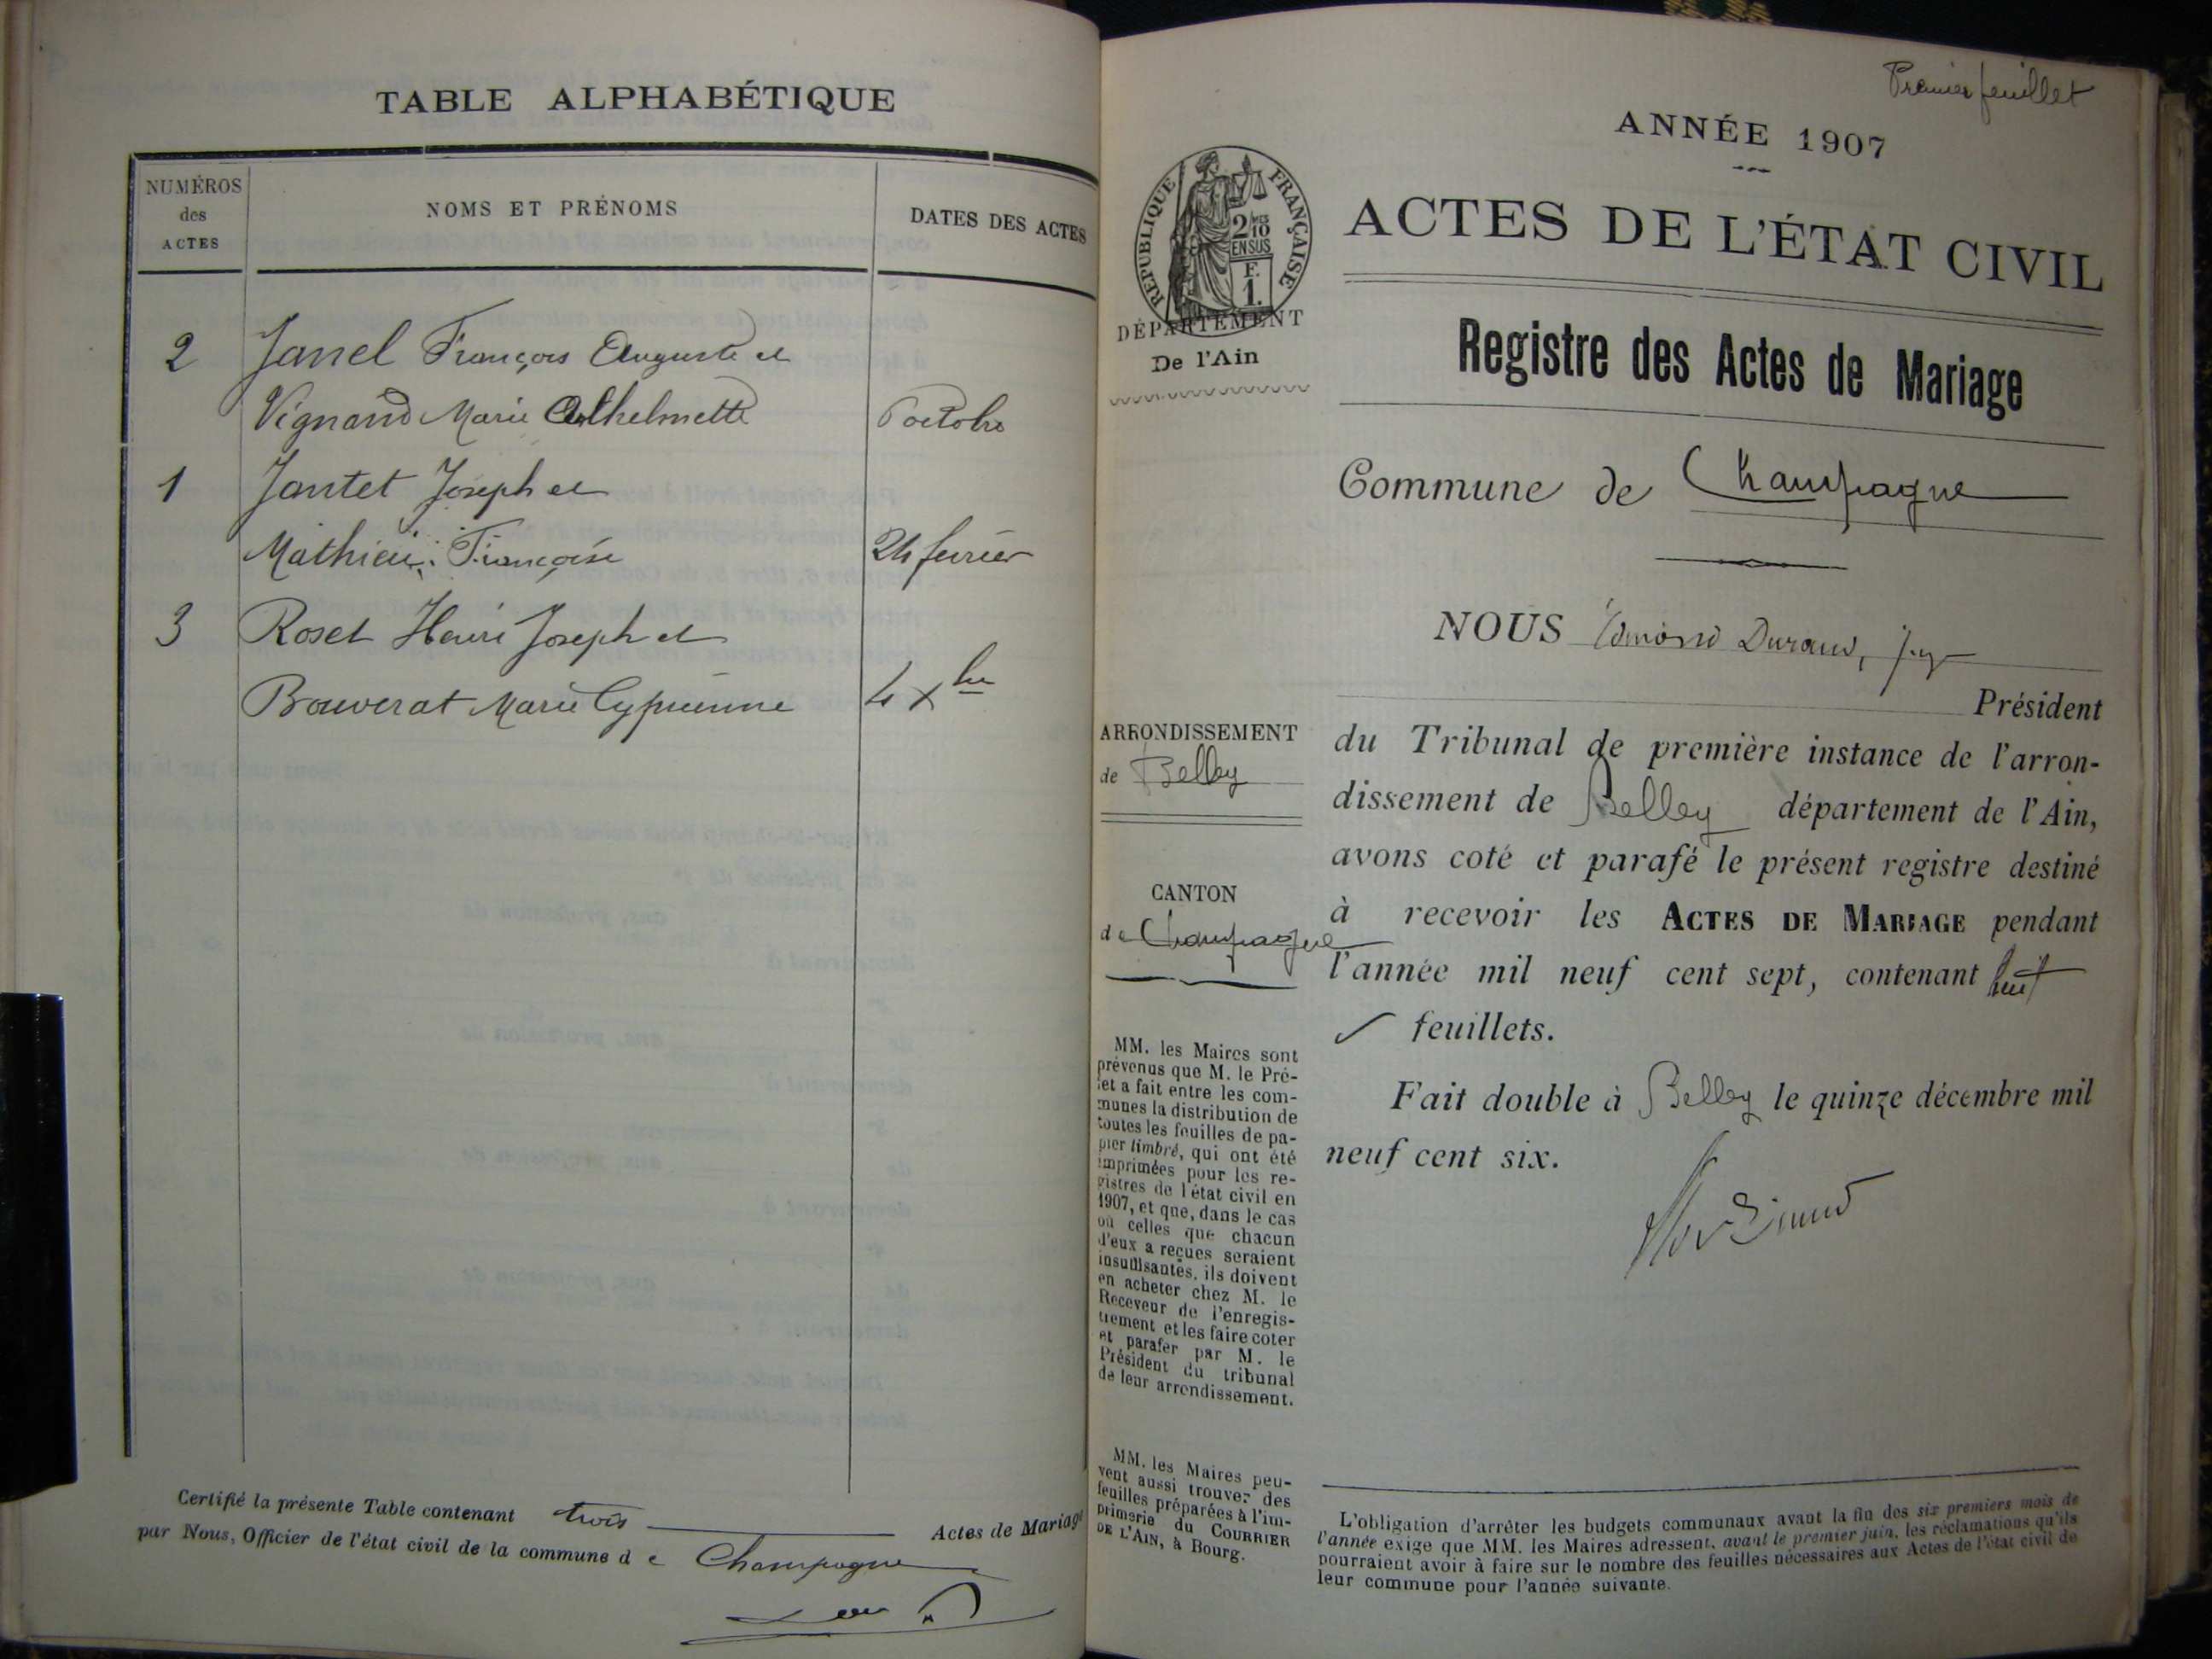 TABLE ALPHABÉTIQUE
NUMÉROS
des
ACTES
NOMS ET PRÉNOMS
DATES DES ACTES
2 Janel François Auguste et
Vignand Marie octobre
1 Jantet Joseph et
Mathieu Françoise 24 février
3 Roset Henri Joseph et
Bouverat Marie Cyprienne 4 Xbre
Certifié la présente Table contenant trois Actes de Mariage
par Nous, Officier de l'état civil de la commune de Champagne
Premier feuillet
ANNÉE 1907
ACTES DE L'ÉTAT CIVIL
RÉPUBLIQUE FRANÇAISE
2/10
EN SUS
F.
1.
DÉPARTEMENT
De l'Ain
Registre des Actes de Mariage
Commune de Champagne
NOUS Edmond Durand, juge
Président
ARRONDISSEMENT
de Belley
CANTON
de Champagne
du Tribunal de première instance de l'arron-
dissement de Belley département de l'Ain,
avons coté et parafé le présent registre destiné
à recevoir les ACTES DE MARIAGE pendant
l'année mil neuf cent sept, contenant huit
feuillets.
Fait double à Belley le quinze décembre mil
neuf cent six.
MM. les Maires sont
prévenus que M. le Pré-
fet a fait entre les com-
munes la distribution de
toutes les feuilles de pa-
pier timbré, qui ont été
imprimées pour les re-
gistres de l'état civil en
1907, et que, dans le cas
où celles que chacun
d'eux a reçues seraient
insuffisantes, ils doivent
en acheter chez M. le
Receveur de l'enregis-
trement et les faire coter
et parafer par M. le
Président du tribunal
de leur arrondissement.
MM. les Maires peu-
vent aussi trouver des
feuilles préparées à l'im-
primerie du COURRIER
DE L'AIN, à Bourg.
L'obligation d'arrêter les budgets communaux avant la fin des six premiers mois de
l'année exige que MM. les Maires adressent, avant le premier juin, les réclamations qu'ils
pourraient avoir à faire sur le nombre des feuilles nécessaires aux Actes de l'état civil de
leur commune pour l'année suivante.